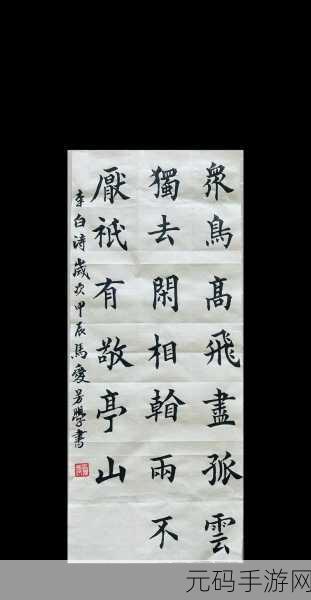 衆鳥高飛盡孤雲
獨去閑相看兩不
厭祇有敬亭山
李白詩歲次甲辰馬愛書
元码手游网